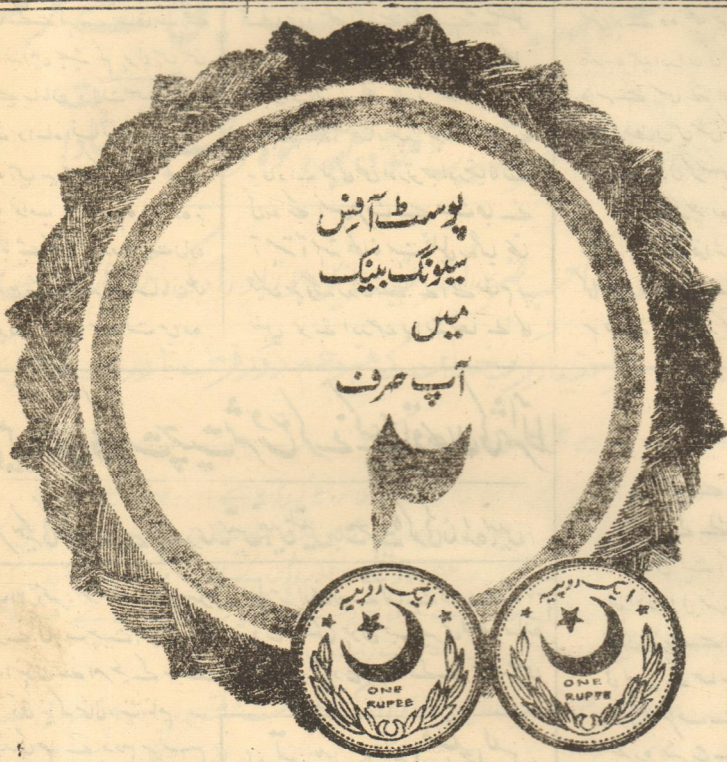 پوسٹ آفس
سیونگ بینک
میں
آپ صرف
۲
ایک روپیہ
ONE
RUPEE
ایک روپیہ
ONE
RUPEE